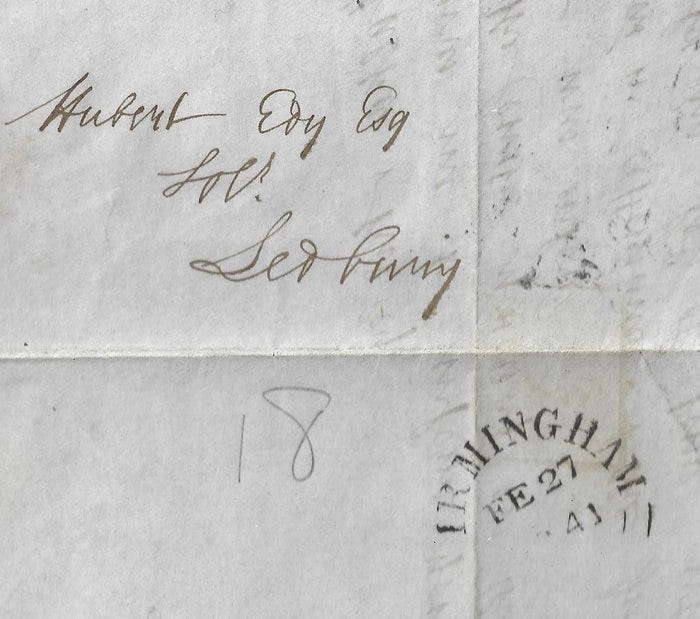 Hubert Edy Esq
Solr
Ledbury
18
IRMINGHAM
FE 27
41